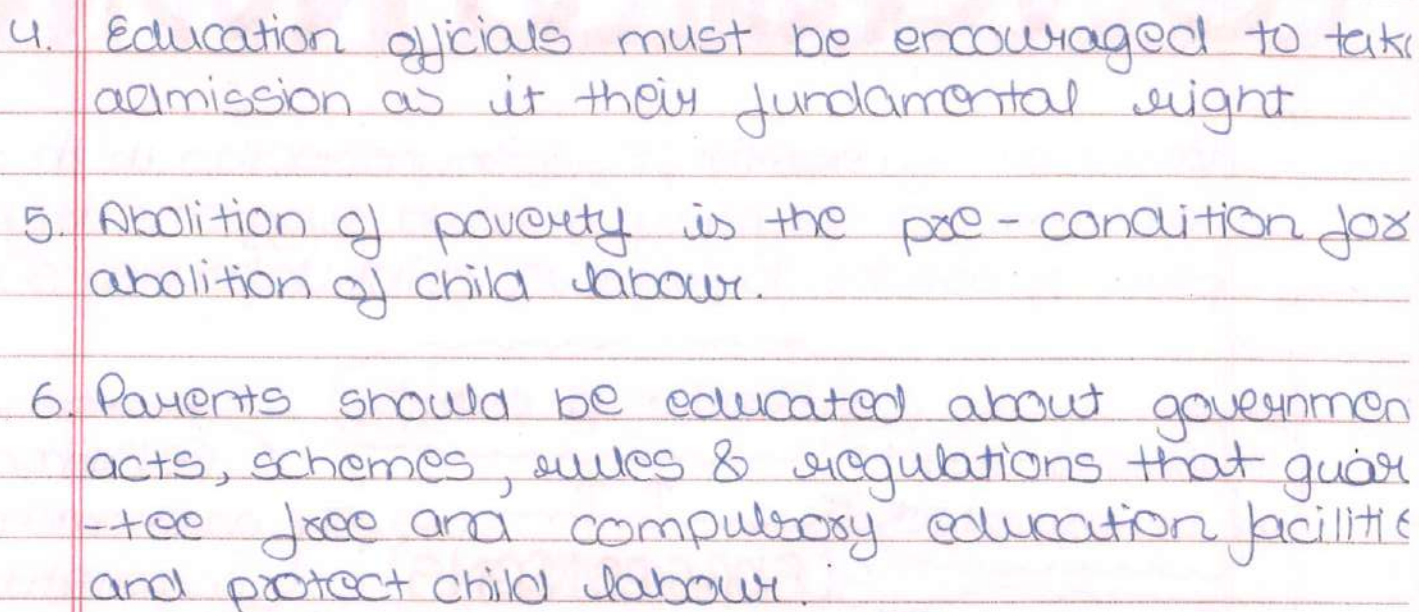 4. Education officials must be encouraged to take
admission as it their fundamental right
5. Abolition of poverty is the pre-condition for
abolition of child labour.
6. Parents should be educated about governmen
acts, schemes, rules & regulations that guar
-tee free and compulsory education facilitie
and protect child labour.